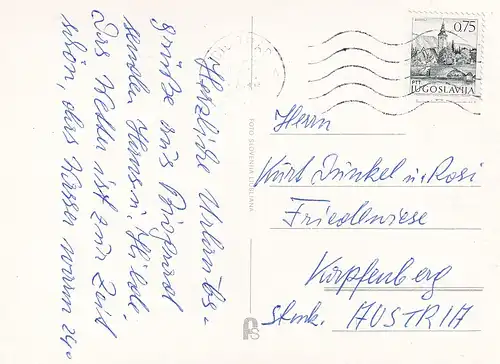 Herzliche Urlaubs-
grüße aus Biograd
senden Hans u. Hilde.
Das Wetter ist zur Zeit
schön, das Wasser warm 24°
FOTO SLOVENIJA LJUBLJANA
0.75
PTT
JUGOSLAVIJA
Herrn
Kurt Dunkel u. Rosi
Friedenwiese
Kapfenberg
Stmk. AUSTRIA